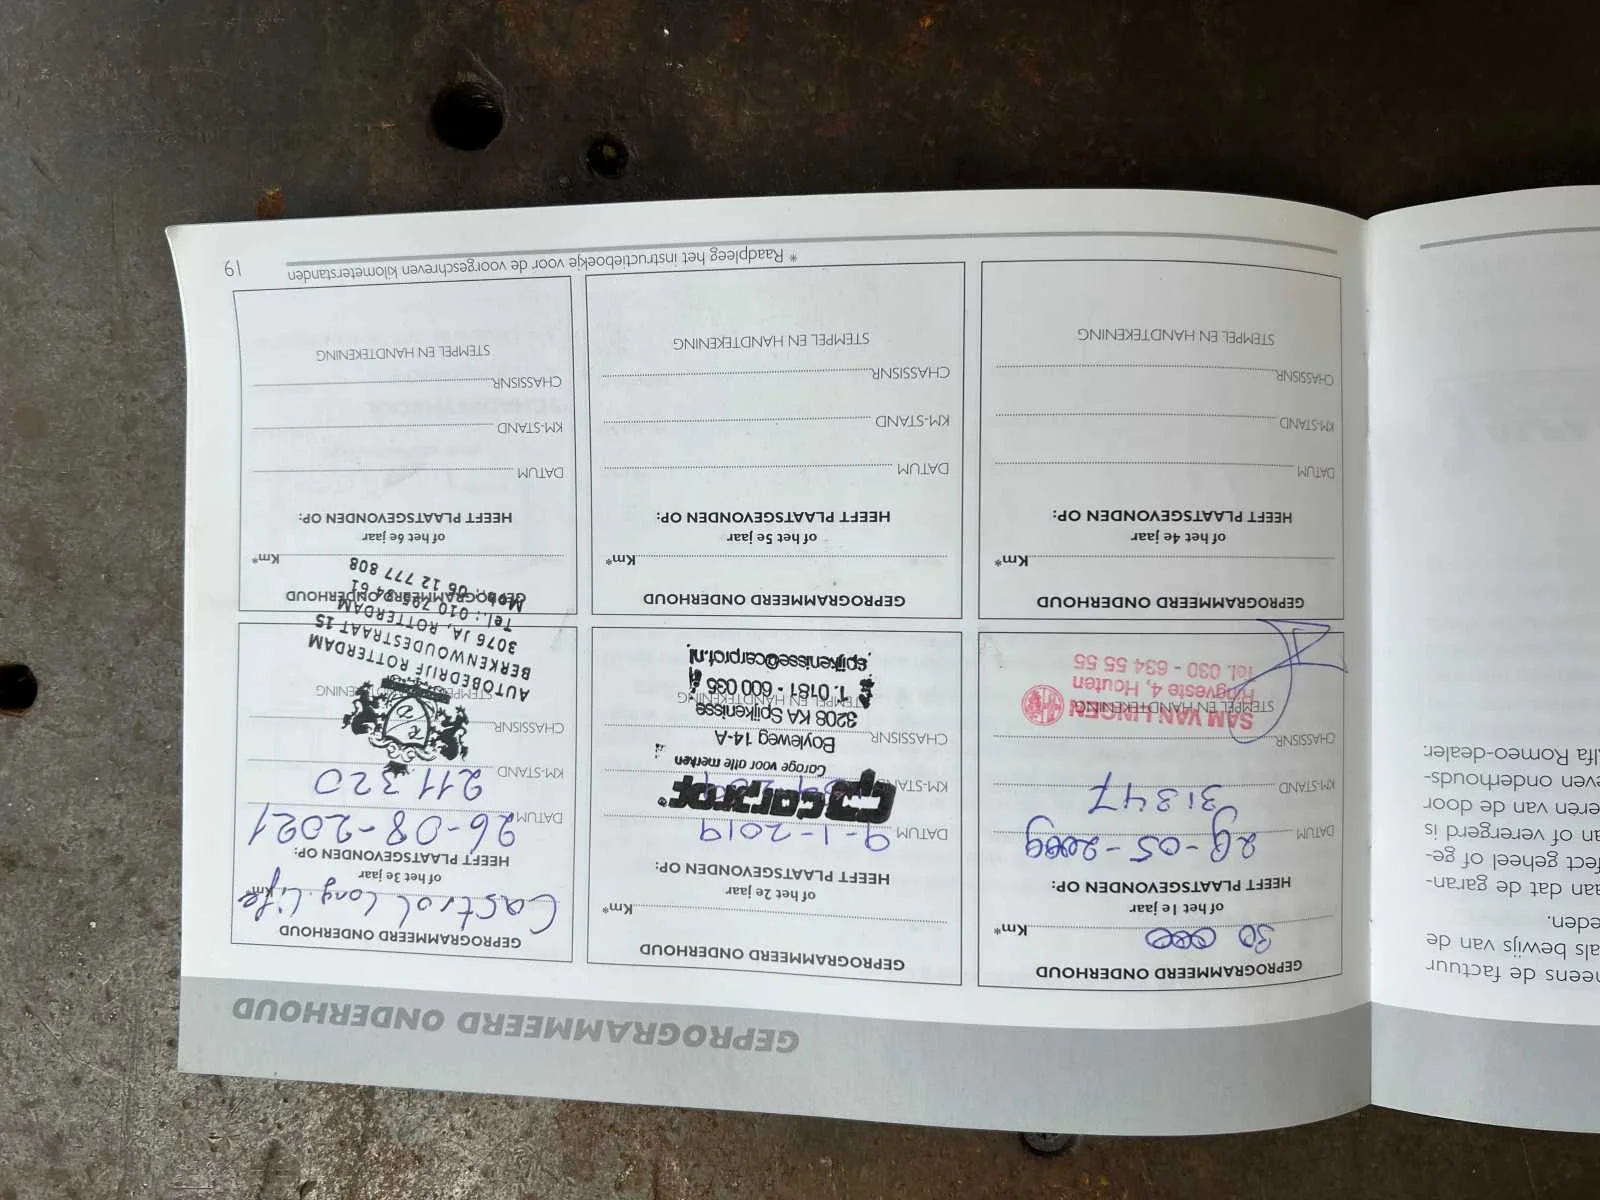 neens de factuur
als bewijs van de
eden.
aan dat de garan-
fect geheel of ge-
an of verergerd is
eren van de door
even onderhouds-
lfa Romeo-dealer.
GEPROGRAMMEERD ONDERHOUD
GEPROGRAMMEERD ONDERHOUD
30 000 Km*
of het 1e jaar
HEEFT PLAATSGEVONDEN OP:
DATUM
KM-STAND 31347
CHASSISNR.
STEMPEL EN HANDTEKENING
SAM VAN LINGEN
Ringveste 4, Houten
Tel. 030 - 634 55 55
GEPROGRAMMEERD ONDERHOUD
Km*
of het 2e jaar
HEEFT PLAATSGEVONDEN OP:
DATUM 9-1-2019
KM-STAND
CHASSISNR.
STEMPEL EN HANDTEKENING
carprof
Garage voor alle merken
Boyleweg 14-A
3208 KA Spijkenisse
T. 0181 - 600 036
spijkenisse@carprof.nl
GEPROGRAMMEERD ONDERHOUD
Castrol Long Life Km*
of het 3e jaar
HEEFT PLAATSGEVONDEN OP:
DATUM 26-08-2021
KM-STAND 211320
CHASSISNR.
STEMPEL EN HANDTEKENING
AUTOBEDRIJF ROTTERDAM
BERKENWOUDESTRAAT 15
3076 JA, ROTTERDAM
Tel.: 010
Mob.: 06 12 777 808
GEPROGRAMMEERD ONDERHOUD
Km*
of het 4e jaar
HEEFT PLAATSGEVONDEN OP:
DATUM
KM-STAND
CHASSISNR.
STEMPEL EN HANDTEKENING
GEPROGRAMMEERD ONDERHOUD
Km*
of het 5e jaar
HEEFT PLAATSGEVONDEN OP:
DATUM
KM-STAND
CHASSISNR.
STEMPEL EN HANDTEKENING
GEPROGRAMMEERD ONDERHOUD
Km*
of het 6e jaar
HEEFT PLAATSGEVONDEN OP:
DATUM
KM-STAND
CHASSISNR.
STEMPEL EN HANDTEKENING
* Raadpleeg het instructieboekje voor de voorgeschreven kilometerstanden
19